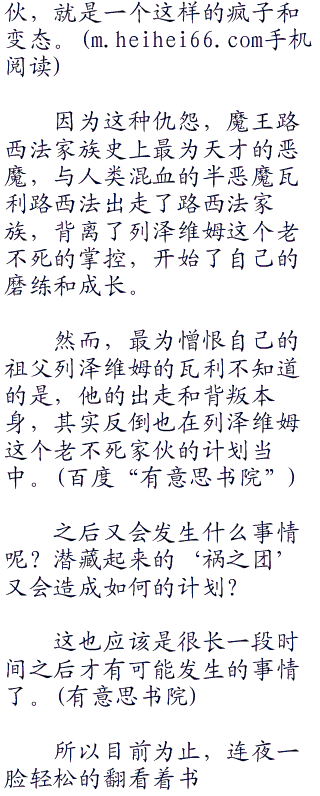 伙，就是一个这样的疯子和
变态。(m.heihei66.com手机
阅读)
因为这种仇怨，魔王路
西法家族史上最为天才的恶
魔，与人类混血的半恶魔瓦
利路西法出走了路西法家
族，背离了列泽维姆这个老
不死的掌控，开始了自己的
磨练和成长。
然而，最为憎恨自己的
祖父列泽维姆的瓦利不知道
的是，他的出走和背叛本
身，其实反倒也在列泽维姆
这个老不死家伙的计划当
中。(百度“有意思书院”)
之后又会发生什么事情
呢？潜藏起来的‘祸之团’
又会造成如何的计划？
这也应该是很长一段时
间之后才有可能发生的事情
了。(有意思书院)
所以目前为止，连夜一
脸轻松的翻看着书